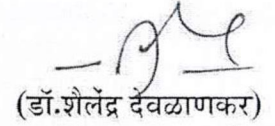 (डॉ.शैलेंद्र देवळाणकर)